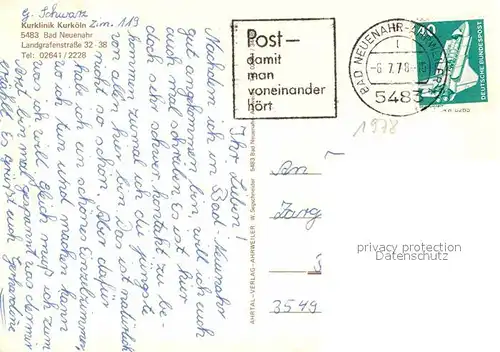 G. Schwartz
Zim. 113
Kurklinik Kurköln
5483 Bad Neuenahr
Landgrafenstraße 32 - 38
Tel. 02641 / 2228
Post—
damit
man
voneinander
hört
BAD NEUENAHR-AHRWEILER
-6.7.78
5483
40
DEUTSCHE BUNDESPOST
1978
Ihr Lieben!
Nachdem ich in Bad-Neuenahr
gut angekommen bin, will ich euch
mal schreiben. Es ist hier
doch sehr schwer Kontakt zu be-
kommen, zumal ich die jüngste
von allen hier bin. Das ist natürlich
nicht so schön. Aber dafür
habe ich ein schönes Einzelzimmer,
wo ich tun und machen kann
was ich will. Gleich muß ich zum
Arzt bin mal gespannt was der mir
erzählt. Es grüßt euch
AHRTAL-VERLAG-AHRWEILER · W. Segschneider · 5483 Bad Neuenahr
An
3549
privacy protection
Datenschutz